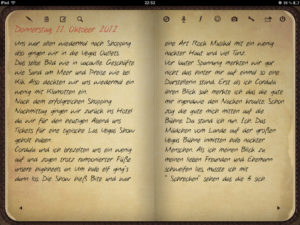 iPad
22:52
Donnerstag 11. Oktober 2012
Uns war allen wiedermal nach Shopping
also gingen wir in die Vegas Outlets.
Das selbe Bild wie in
wie Sand am Meer und Preise wie bei
Kik. Also deckten wir uns wiedermal ein
wenig mit Klamotten ein.
Nach dem erfolgreichen Shopping
Nachmittag gingen wir zurück ins Hotel
da wir für den heutigen Abend uns
Tickets für eine typische Las Vegas Show
geholt haben.
Cordula und ich brezelten uns ein wenig
auf und zogen trotz Füße
unsere highheels an. Um halb elf ging's
dann los. Die Show hieß Bite und war
eine Art Rock Musical mit ein wenig
nackter Haut und viel Tanz.
Vor lauter Spannung merkten wir gar
nicht das hinter mir auf einmal so eine
Darstellerin stand. Erst als ich Cordula
ihren Blick sah merkte ich das die gute
mir irgendwie den Nacken kraulte. Schön
zog die gute mich mitten auf die
Bühne. Da stand ich nun. Ich. Das
Mädchen vom Lande auf der großen
Vegas Bühne inmitten halb nackter
Menschen. Als ich meinen Blick zu
meinen lieben Freunden und Ehemann
schweifen lies, musste ich mit
" Schrecken" sehen das die 3 sich